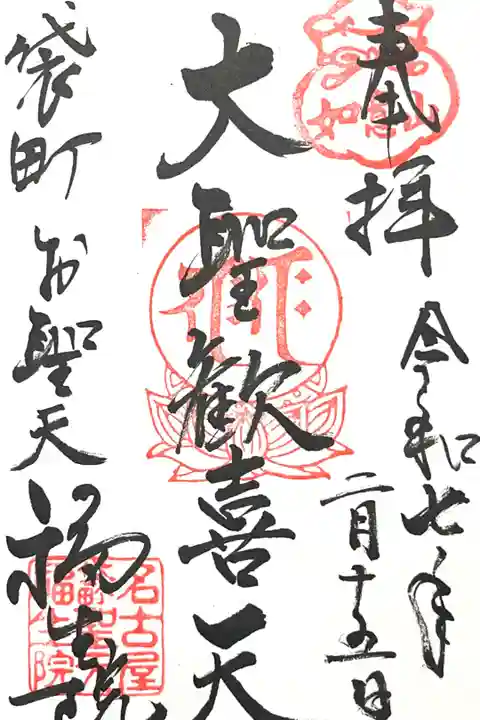 奉拝
令和七年
二月十五日
大聖歓喜天
袋町お聖天
福生院
如意山
名古屋
福生院